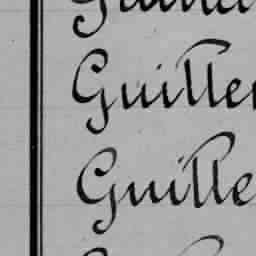 Guiller
Guille